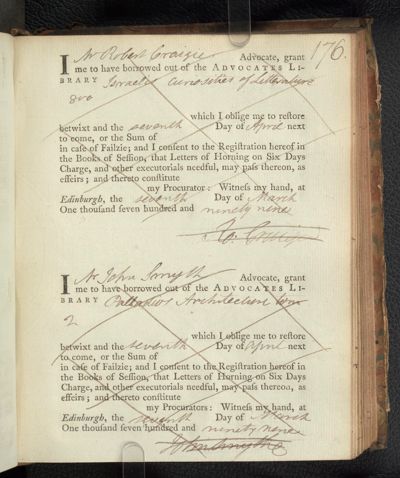 176.
I Mr Robert Craigie Advocate, grant
me to have borrowed out of the ADVOCATES LI-
BRARY Israelis Curiosities of Litterature
8vo
which I oblige me to reſtore
betwixt and the seventh Day of April next
to come, or the Sum of
in caſe of Failzie; and I conſent to the Regiſtration hereof in
the Books of Seſſion, that Letters of Horning on Six Days
Charge, and other executorials needful, may paſs thereon, as
effeirs; and thereto conſtitute
my Procurator: Witneſs my hand, at
Edinburgh, the seventh Day of March
One thouſand ſeven hundred and ninety nine
Ro. Craigie
I Mr John Smyth Advocate, grant
me to have borrowed out of the ADVOCATES LI-
BRARY Palladios Architecture tom
2
which I oblige me to reſtore
betwixt and the seventh Day of April next
to come, or the Sum of
in caſe of Failzie; and I conſent to the Regiſtration hereof in
the Books of Seſſion, that Letters of Horning on Six Days
Charge, and other executorials needful, may paſs thereon, as
effeirs; and thereto conſtitute
my Procurators: Witneſs my hand, at
Edinburgh, the seventh Day of March
One thouſand ſeven hundred and ninety nine
John Smythe